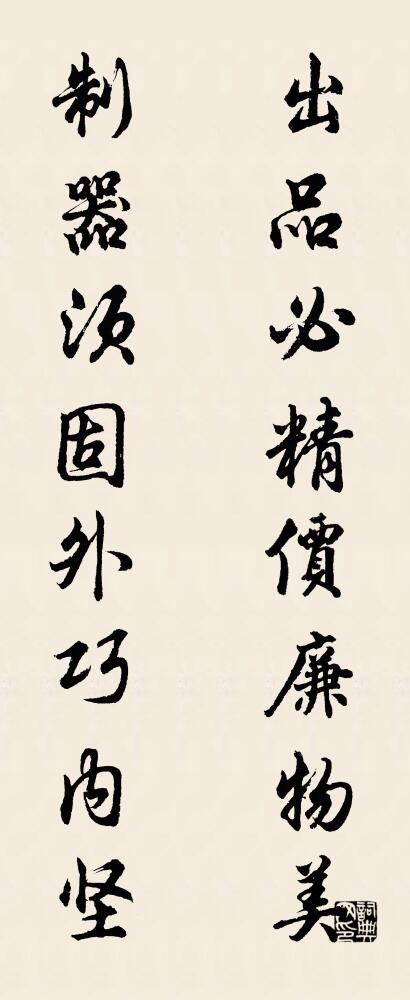 出品必精價廉物美
制器须固外巧内坚